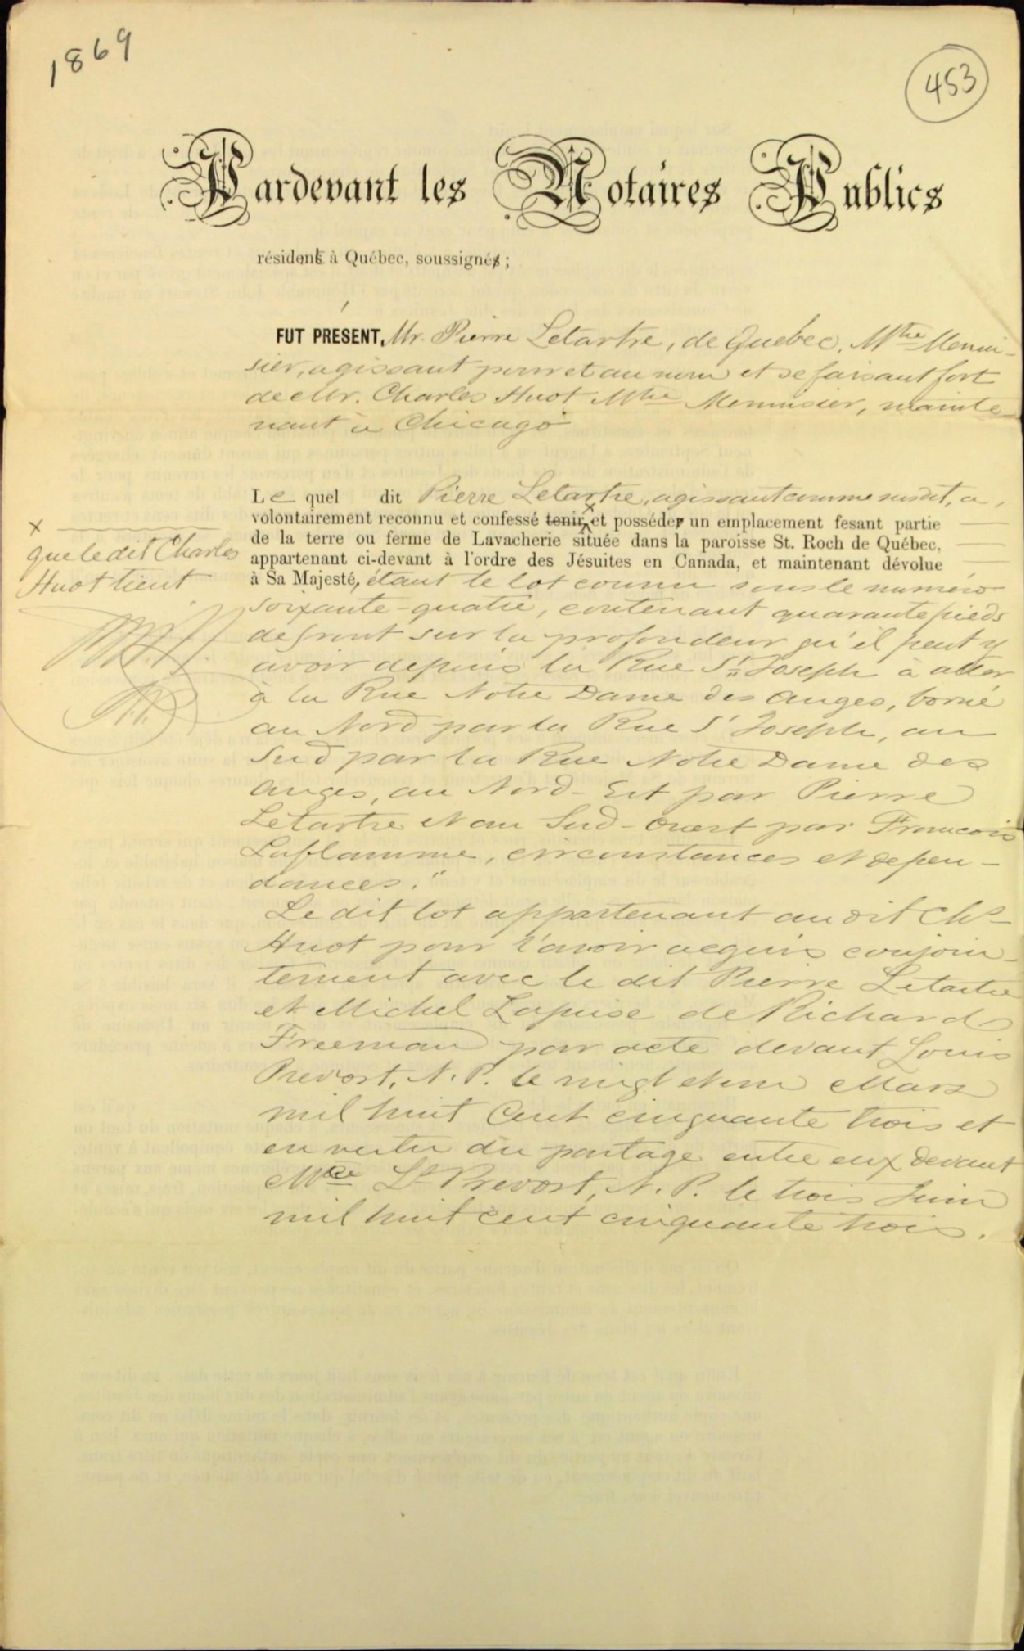 1869
453
Pardevant les Notaires Publics
résident à Québec, soussigné ;
FUT PRÉSENT, Mr. Pierre Letartre, de Quebec, Mtre Menui-
sier, agissant pour et au nom et se faisant fort
de Mr. Charles Huot Mtre Menuisier, mainte-
nant à Chicago
Le quel dit Pierre Letartre, agissant comme susdit, a,
volontairement reconnu et confessé tenir x et posséder un emplacement fesant partie
de la terre ou ferme de Lavacherie située dans la paroisse St. Roch de Québec,
appartenant ci-devant à l'ordre des Jésuites en Canada, et maintenant dévolue
à Sa Majesté, étant le lot connu sous le numéro
soixante-quatre, contenant quarante pieds
de front sur la profondeur qu'il peut y
avoir depuis la Rue St Joseph à aller
à la Rue Notre Dame des Anges, borné
au Nord par la Rue St Joseph, au
Sud par la Rue Notre Dame des
Anges, au Nord-Est par Pierre
Letartre et au Sud-Ouest par Francois
Laflamme, circonstances et depen-
dances."
Le dit lot appartenant au dit Chs
Huot pour l'avoir acquis conjoin-
tement avec le dit Pierre Letartre
et Michel Lapise de Richard
Freeman par acte devant Louis
Prevost, N. P. le vingt et un Mars
mil huit Cent cinquante trois et
en vertu du partage entre eux devant
Mtre Ls Prevost, N. P. le trois Juin
mil huit cent cinquante trois.
x
que le dit Charles
Huot tient